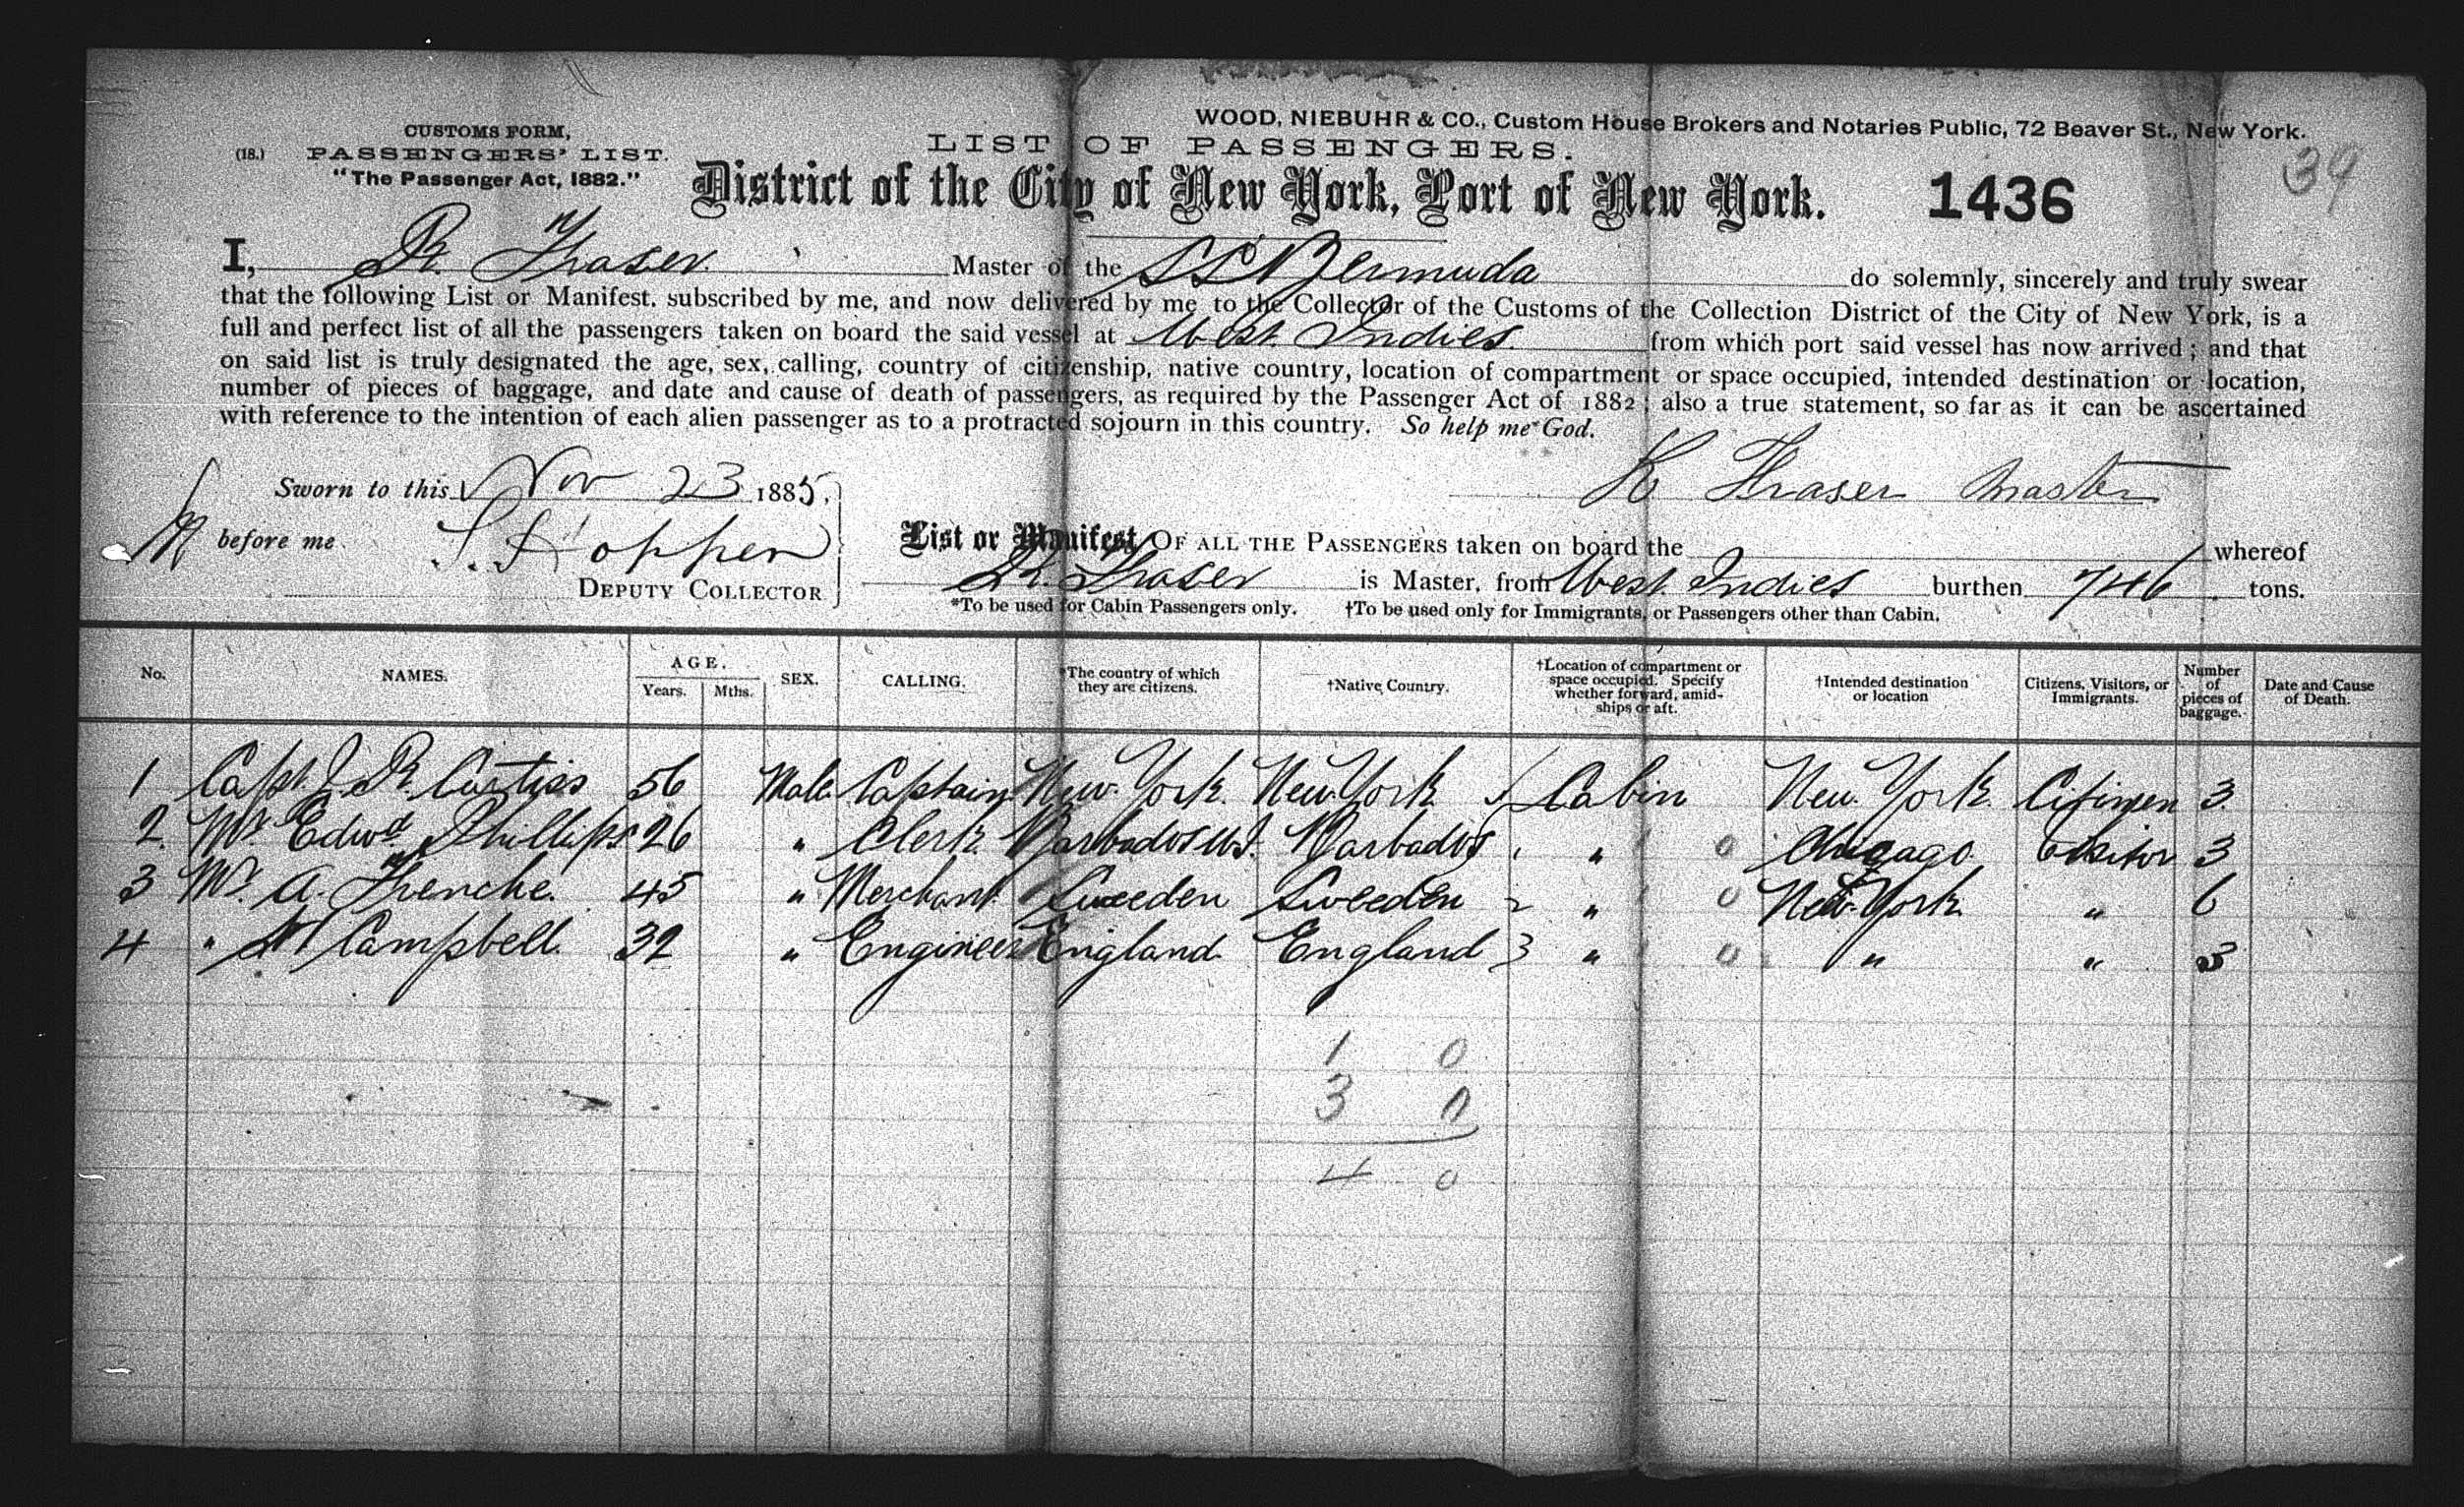 WOOD, NIEBUHR & CO., Custom House Brokers and Notaries Public, 72 Beaver St., New York.
CUSTOMS FORM,
(18.) PASSENGERS' LIST.
"The Passenger Act, 1882."
LIST OF PASSENGERS.
District of the City of New York, Port of New York. 1436 39
I, R. Fraser Master of the SS Bermuda do solemnly, sincerely and truly swear
that the following List or Manifest, subscribed by me, and now delivered by me to the Collector of the Customs of the Collection District of the City of New York, is a
full and perfect list of all the passengers taken on board the said vessel at West Indies from which port said vessel has now arrived; and that
on said list is truly designated the age, sex, calling, country of citizenship, native country, location of compartment or space occupied, intended destination or location,
number of pieces of baggage, and date and cause of death of passengers, as required by the Passenger Act of 1882; also a true statement, so far as it can be ascertained
with reference to the intention of each alien passenger as to a protracted sojourn in this country. So help me God.
R Fraser Master
Sworn to this Nov 23 1885,
before me S. Hopper
DEPUTY COLLECTOR
List or Manifest OF ALL THE PASSENGERS taken on board the whereof
R. Fraser is Master, from West Indies burthen 746 tons.
*To be used for Cabin Passengers only. †To be used only for Immigrants, or Passengers other than Cabin.
No. NAMES. AGE. Years. Mths. SEX. CALLING. *The country of which they are citizens. †Native Country. †Location of compartment or space occupied. Specify whether forward, amidships or aft. †Intended destination or location Citizens, Visitors, or Immigrants. Number of pieces of baggage. Date and Cause of Death.
1 Capt J. R. Curtiss 56 Male Captain New York New York / Cabin New York Citizen 3
2. Mr Edwd Phillips 26 " Clerk Barbados W.I. Barbados 1 " 0 Chicago Visitor 3
3 Mr. A. Frenche. 45 " Merchant Sweeden Sweeden 2 " 0 New York " 6
4 " Campbell. 32 " Engineer England England 3 " 0 " " 3
1 0
3 0
4 0